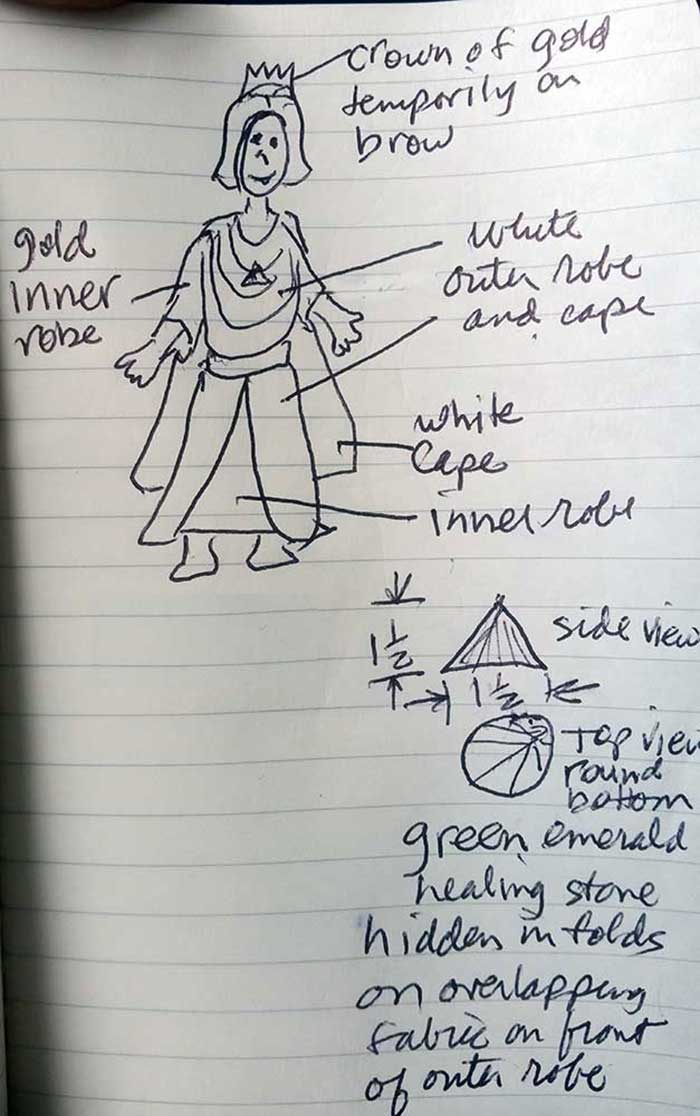 crown of gold
temporily on
brow
gold
inner
robe
white
outer robe
and cape
white
cape
inner robe
1 1/2
side view
1 1/2
top view
round
bottom
green emerald
healing stone
hidden in folds
on overlapping
fabric on front
of outer robe